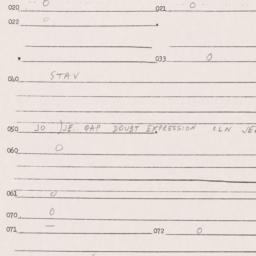 020 0 021 0
022 0
033 0
040 STAV
050 JO JE GAP DOUBT EXPRESSION
060 0
061 0
070 0
071 — 072 0